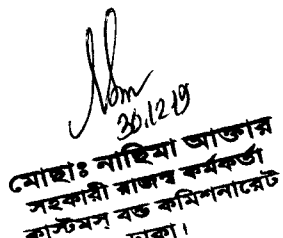 30.12.19
মোছাঃ নাছিমা আক্তার
সহকারী রাজস্ব কর্মকর্তা
কাস্টমস্ বন্ড কমিশনারেট
ঢাকা।